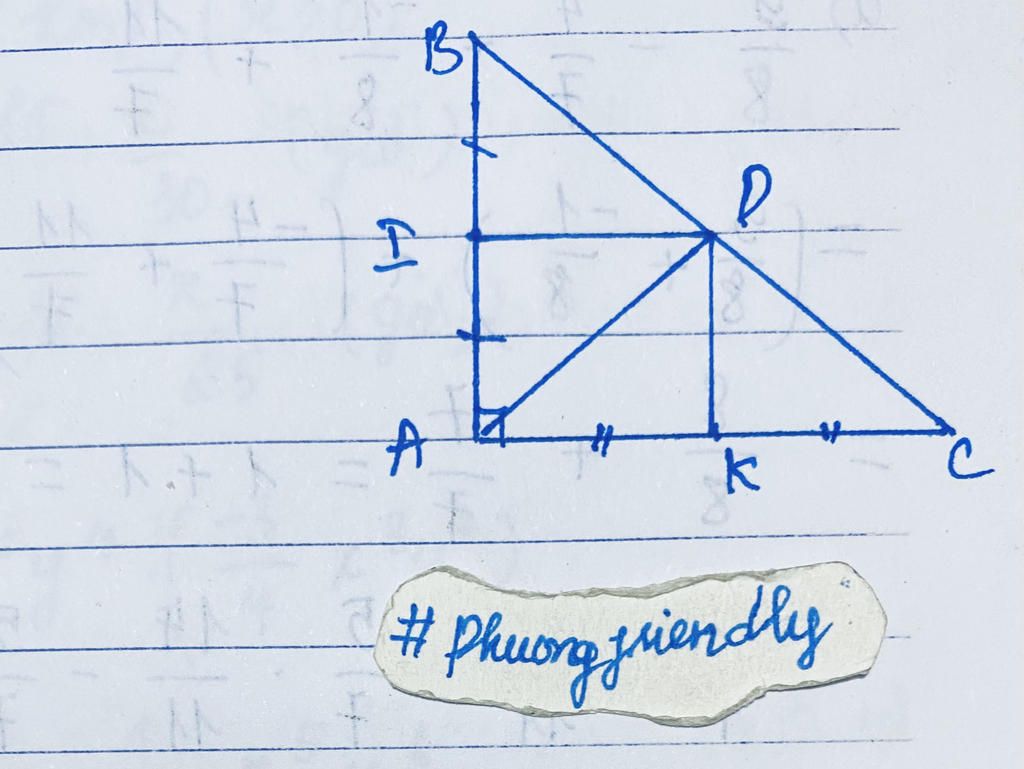 B
D
I
A
K
C
# Phuongfriendly